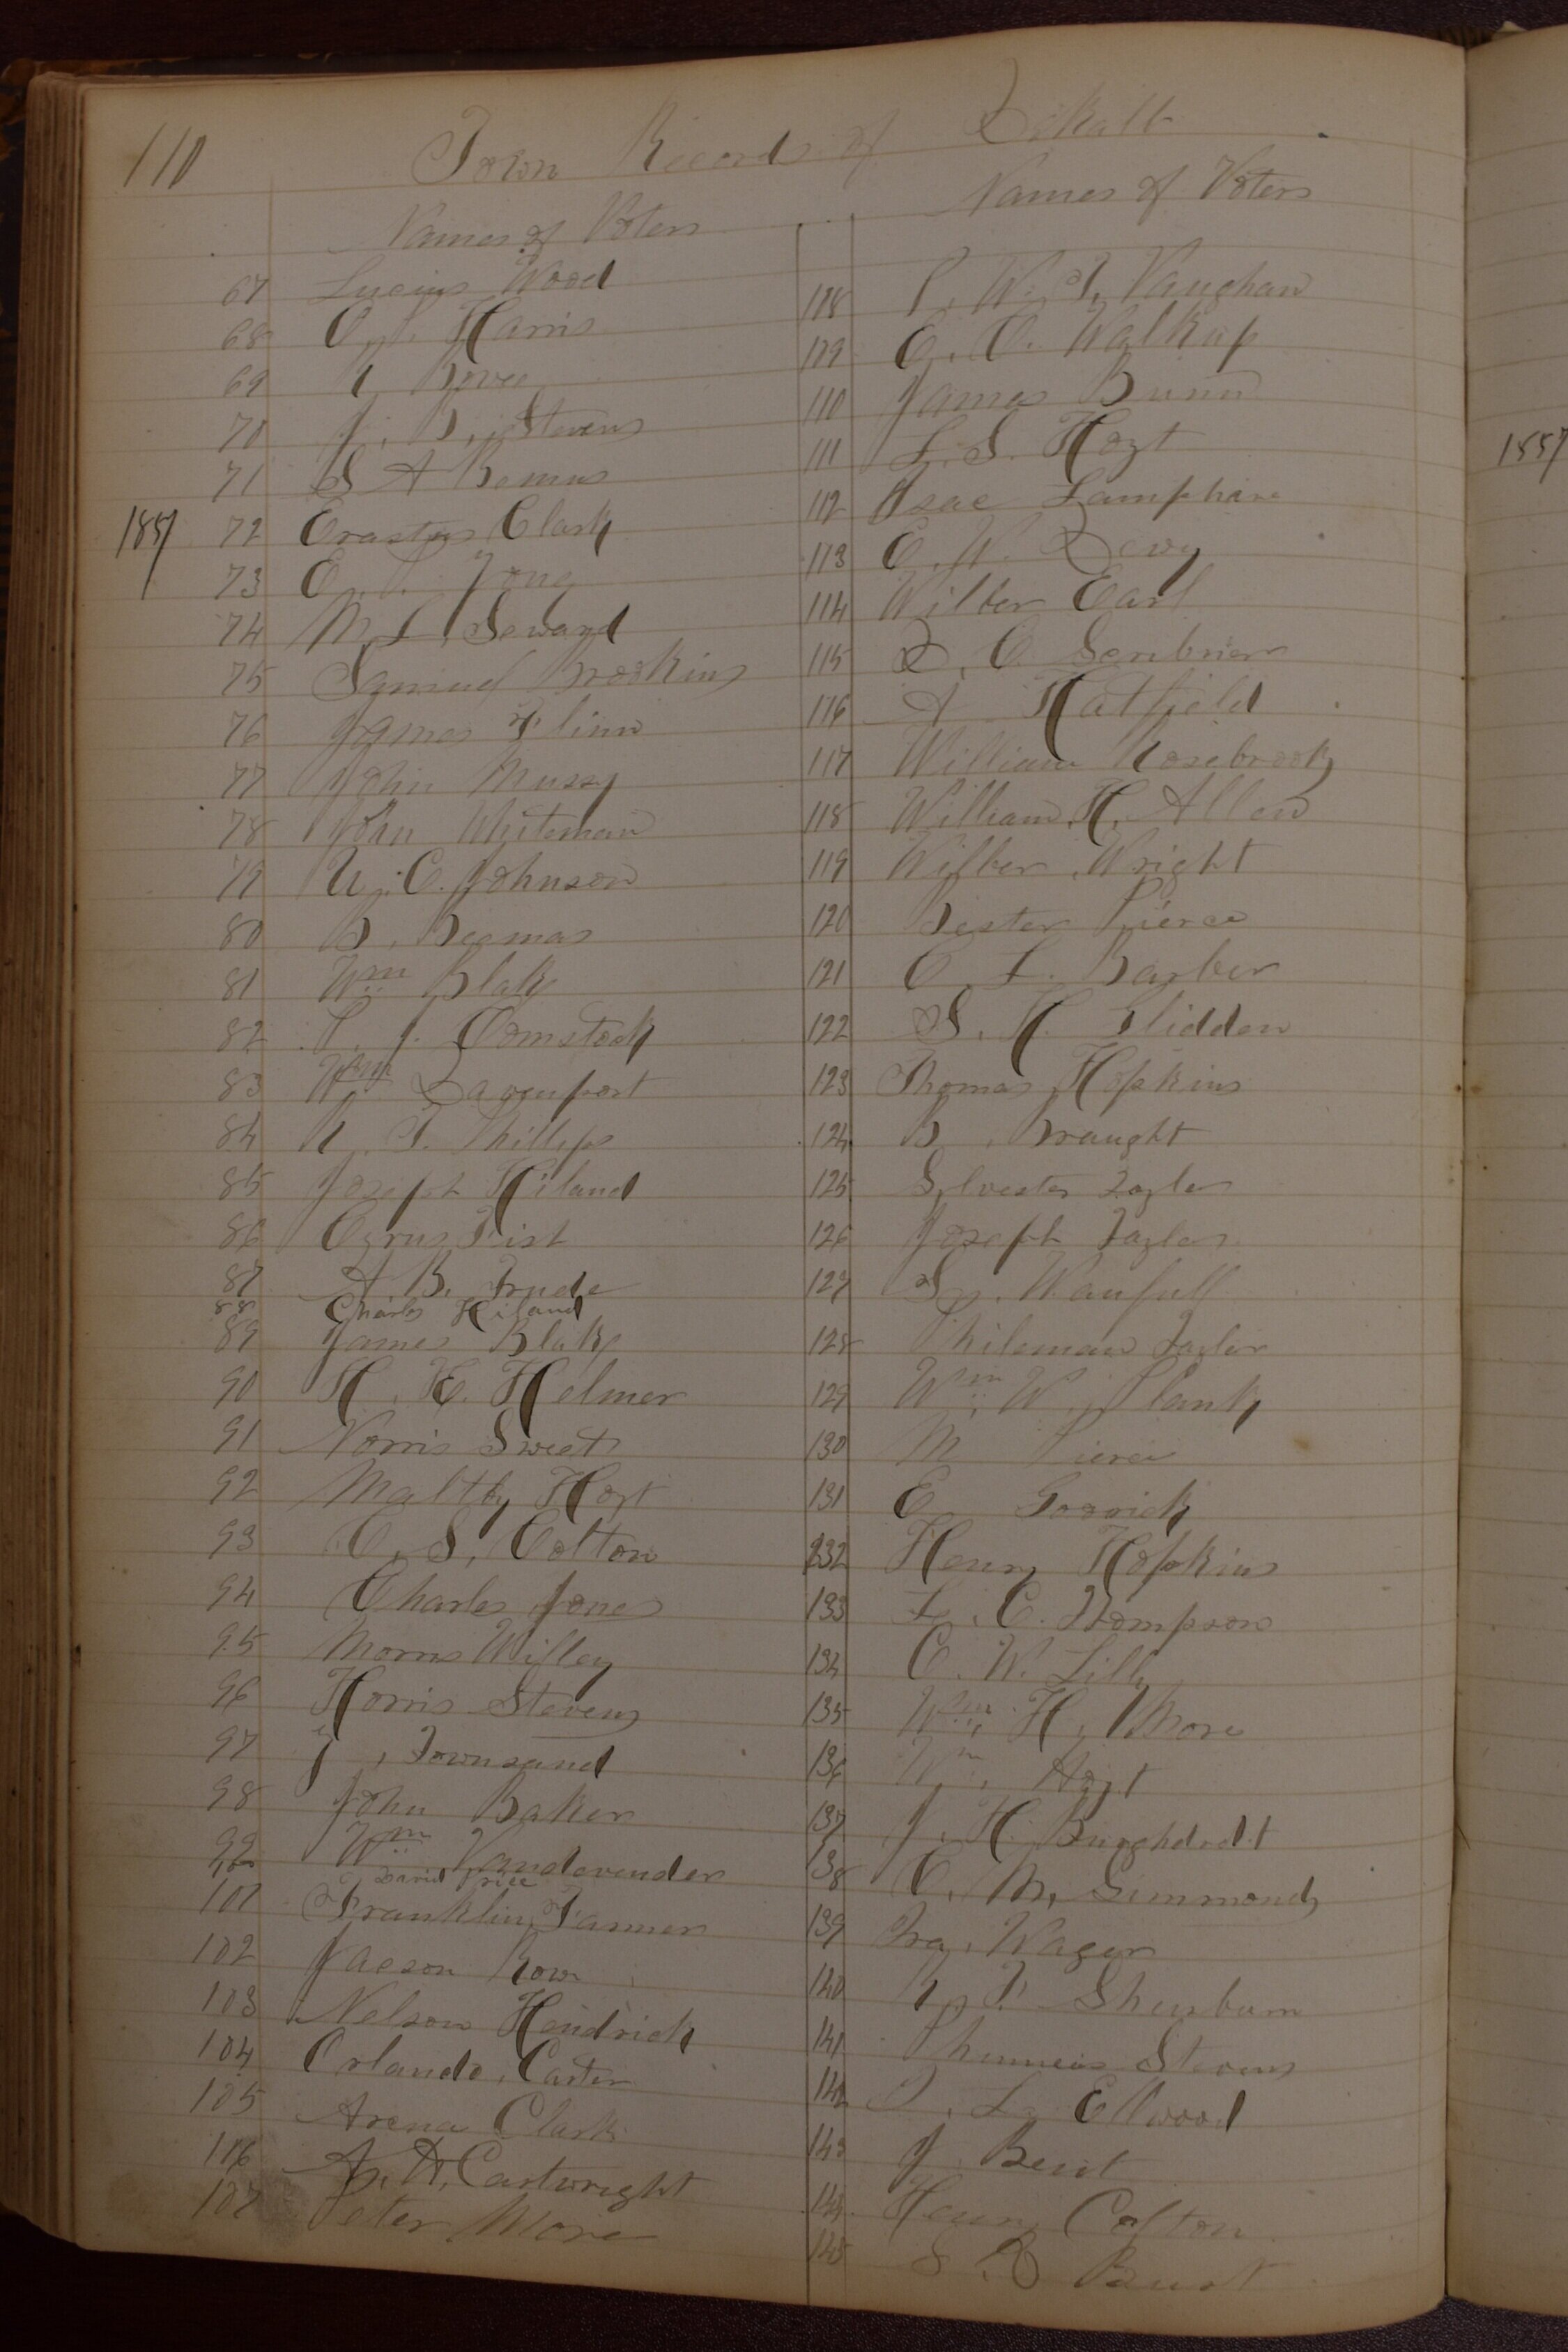 110 Town Records of DeKalb
Names of Voters
67 Lucius Wood
68 O. P. Harris
69 R Bovee
70 J. B. Stevens
71 S A Bemus
1857 72 Erastus Clark
73 E. P. Young
74 M L Seward
75 Samuel Brookins
76 James Flinn
77 John Mussy
78 John Whiteman
79 U. C. Johnson
80 B. Beemas
81 Wm Blake
82 P. J. Comstock
83 Wm Davenport
84 R. T. Phillips
85 Joseph Hiland
86 Cyrus Fish
87 A B. Trude
88 Charles Hiland
89 James Blake
90 H. H. Helmer
91 Norris Sweet
92 Maltby Hoyt
93 C. S. Colton
94 Charles Jones
95 Morris Willey
96 Horris Stevens
97 J. Townsand
98 John Baker
99 Wm Vandevender
100 David Price
101 Franklin Tanner
102 Jacson Row
103 Nelson Hendrick
104 Orlando Carter
105 Arena Clark
106 A. A. Cartwright
107 Peter More
Names of Voters
108 P. W. T. Vaughan
109 E. O. Walkup
110 James Bunn
111 L. S. Hoyt
112 Isac Lamphare
113 E. W. Dewy
114 Wilber Earl
115 D. C. Scribner
116 A Hatfield
117 William Rosebrook
118 William H. Allen
119 Wilber Wright
120 Lester Pierce
121 C. L. Barber
122 S. H. Glidden
123 Thomas Hopkins
124 B. Braught
125 Sylvester Taylor
126 Joseph Taylor
127 S. Waufull
128 Phileman Taylor
129 Wm W. Plank
130 M Pierce
131 E Goodrich
132 Henry Hopkins
133 L. C. Thompson
134 C. W. Lilly
135 Wm H. More
136 Wm Hoyt
137 J. H. Burghdrdt
138 C. M. Simmonds
139 Ira Wager
140 R. F. Sherburn
141 Phinneus Stevens
142 I. L. Ellwood
143 J Bent
144 Henry Colton
145 S B
1857